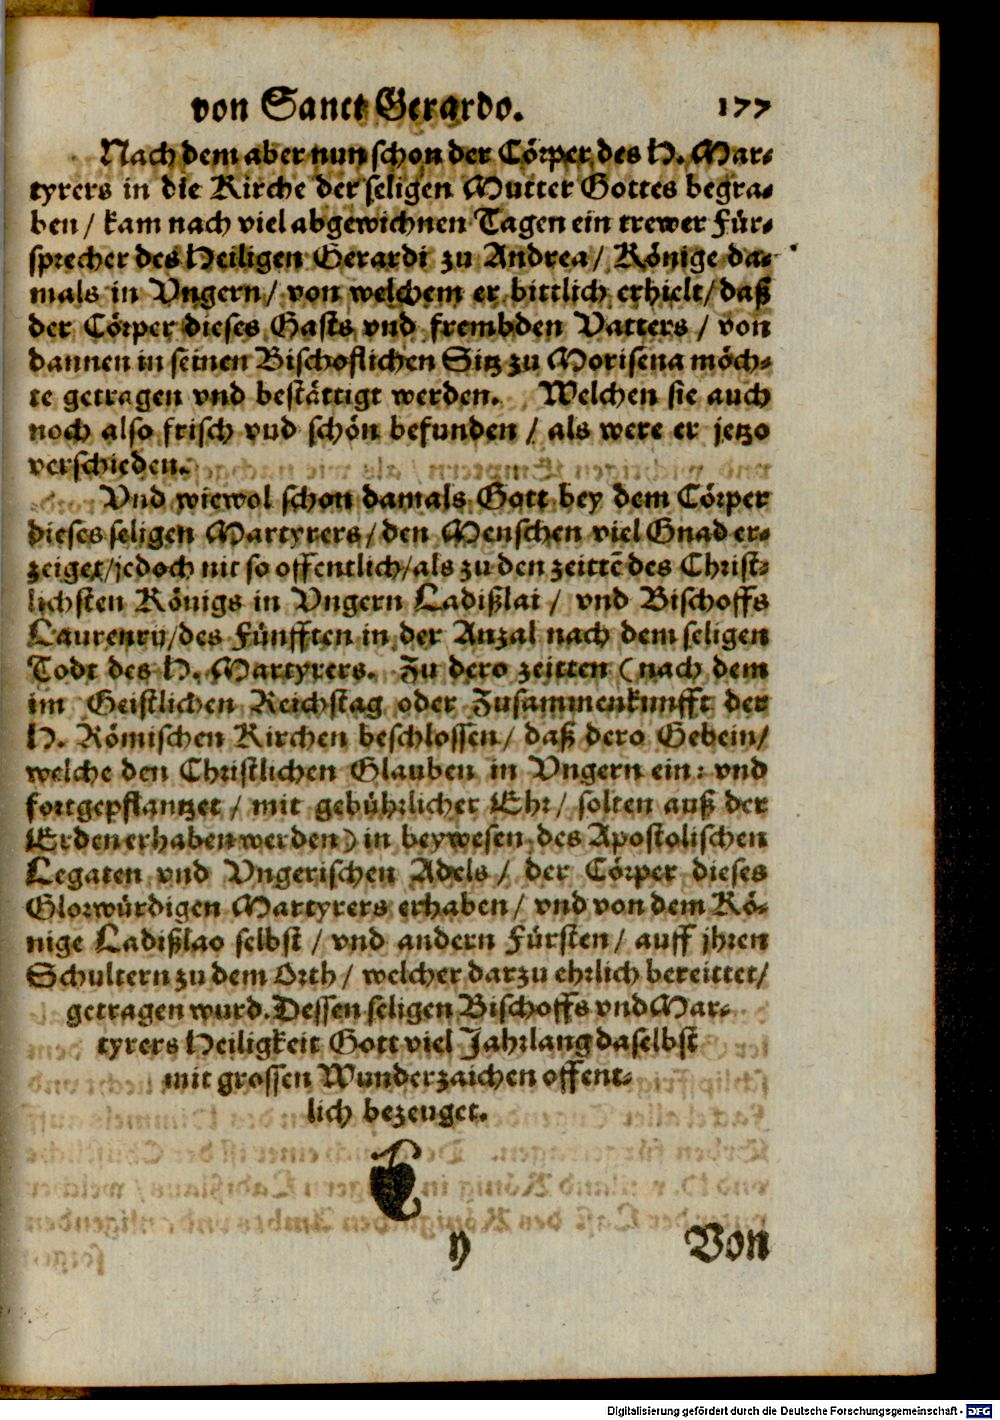 von Sanct Gerardo. 177
Nach dem aber nun schon der Cörper des H. Mar-
tyrers in die Kirche der seligen Mutter Gottes begra-
ben / kam nach viel abgewichnen Tagen ein trewer Für-
sprecher des Heiligen Gerardi zu Andrea / Könige da-
mals in Vngern / von welchem er bittlich erhielt / daß
der Cörper dieses Gasts vnd frembden Vatters / von
dannen in seinen Bischoflichen Sitz zu Morisena möch-
te getragen vnd bestättigt werden. Welchen sie auch
noch also frisch vnd schön befunden / als were er jetzo
verschieden.
Vnd wiewol schon damals Gott bey dem Cörper
dieses seligen Martyrers / den Menschen viel Gnad er-
zeiget / jedoch nit so offentlich / als zu den zeittẽ des Christ-
lichsten Königs in Vngern Ladißlai / vnd Bischoffs
Laurentij / des Fünfften in der Anzal nach dem seligen
Todt des H. Martyrers. Zu dero zeitten (nach dem
im Geistlichen Reichstag oder Zusammenkunfft der
H. Römischen Kirchen beschlossen / daß dero Gebein /
welche den Christlichen Glauben in Vngern ein: vnd
fortgepflantzet / mit gebührlicher Ehr / solten auß der
Erden erhaben werden) in beywesen des Apostolischen
Legaten vnd Vngerischen Adels / der Cörper dieses
Glorwürdigen Martyrers erhaben / vnd von dem Kö-
nige Ladißlao selbst / vnd andern Fürsten / auff jhren
Schultern zu dem Orth / welcher darzu ehrlich bereittet /
getragen wurd. Dessen seligen Bischoffs vnd Mar-
tyrers Heiligkeit Gott viel Jahr lang daselbst
mit grossen Wunderzaichen offent-
lich bezeuget.
y Von
Digitalisierung gefördert durch die Deutsche Forschungsgemeinschaft - DFG